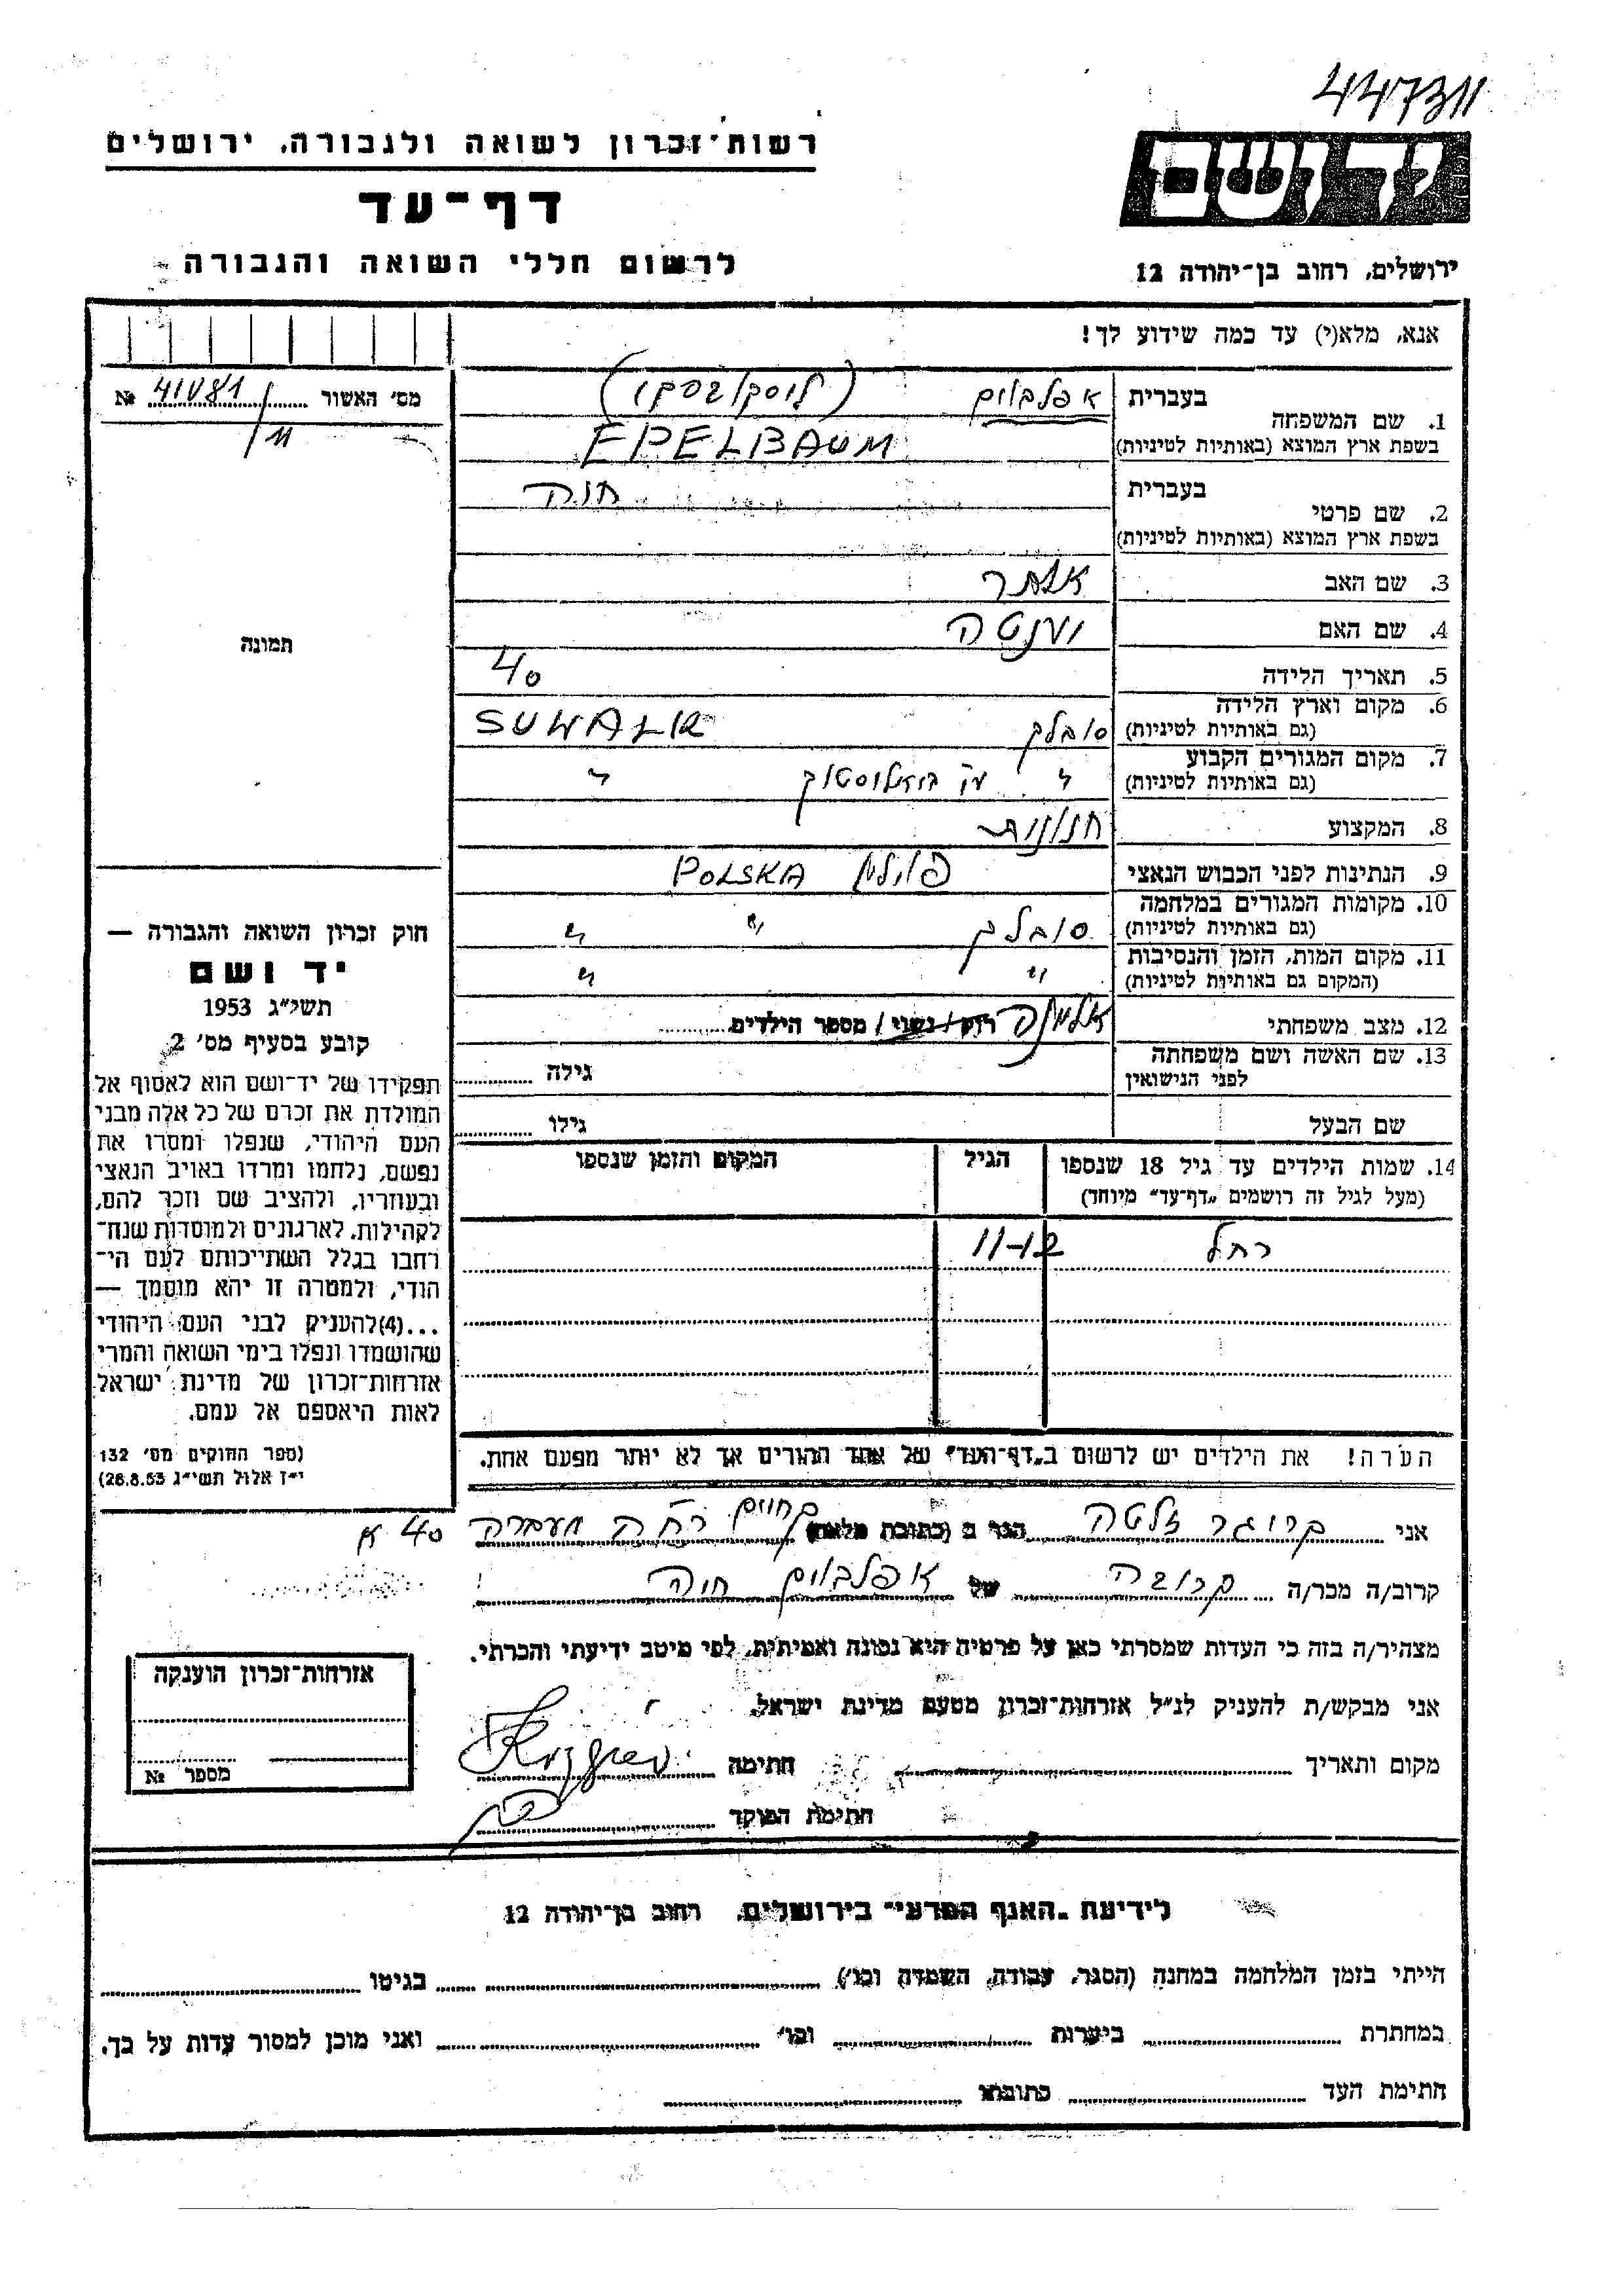 447311
רשות־זכרון לשואה ולגבורה, ירושלים
יד ושם
דף־עד
לרשום חללי השואה והגבורה
ירושלים, רחוב בן־יהודה 12
אנא, מלא(י) עד כמה שידוע לך!
מס' האשור 41081 №
11
1. שם המשפחה
בעברית אפלבוים
בשפת ארץ המוצא (באותיות לטיניות) EPELBAUM
2. שם פרטי
בעברית חוה
בשפת ארץ המוצא (באותיות לטיניות)
3. שם האב
4. שם האם
5. תאריך הלידה 40
6. מקום וארץ הלידה סובלק SUWALK
(גם באותיות לטיניות)
7. מקום המגורים הקבוע " "
(גם באותיות לטיניות)
8. המקצוע חנונית
9. הנתינות לפני הכבוש הנאצי פולין POLSKA
10. מקומות המגורים במלחמה סובלק " "
(גם באותיות לטיניות)
11. מקום המות, הזמן והנסיבות " "
(המקום גם באותיות לטיניות)
12. מצב משפחתי אלמנה רווק/נשוי/ מספר הילדים
13. שם האשה ושם משפחתה גילה
לפני הנישואין
שם הבעל גילו
14. שמות הילדים עד גיל 18 שנספו הגיל המקום והזמן שנספו
(מעל לגיל זה רושמים „דף־עד" מיוחד)
רחל 11-12
הערה! את הילדים יש לרשום ב„דף־העד" של אחד ההורים אך לא יותר מפעם אחת.
תמונה
חוק זכרון השואה והגבורה —
יד ושם
תשי"ג 1953
קובע בסעיף מס' 2
תפקידו של יד־ושם הוא לאסוף אל
המולדת את זכרם של כל אלה מבני
העם היהודי, שנפלו ומסרו את
נפשם, נלחמו ומרדו באויב הנאצי
ובעוזריו, ולהציב שם וזכר להם,
לקהילות, לארגונים ולמוסדות שנח־
רבו בגלל השתייכותם לעם הי־
הודי, ולמטרה זו יהא מוסמך —
...(4)להעניק לבני העם היהודי
שהושמדו ונפלו בימי השואה והמרי
אזרחות־זכרון של מדינת ישראל
לאות היאספם אל עמם.
(ספר החוקים מס' 132
י"ז אלול תשי"ג 28.8.53)
אני קרוגר זלטה הגר ב (כתובת מלאה) מעברה 40 א
קרוב/ה מכר/ה קרובה של אפלבוים חוה
מצהיר/ה בזה כי העדות שמסרתי כאן על פרטיה היא נכונה ואמיתית, לפי מיטב ידיעתי והכרתי.
אני מבקש/ת להעניק לנ"ל אזרחות־זכרון מטעם מדינת ישראל.
מקום ותאריך חתימה
חתימת הפוקד
אזרחות־זכרון הוענקה
מספר №
לידיעת „האגף המדעי" בירושלים, רחוב בן־יהודה 12
הייתי בזמן המלחמה במחנה (הסגר, עבודה, השמדה וכו') בגיטו
במחתרת ביערות וכו' ואני מוכן למסור עדות על כך.
חתימת העד כתובתו